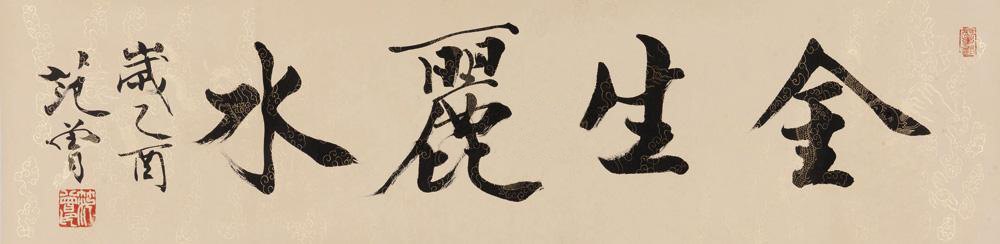 金生麗水
歲乙酉
范曾
范曾